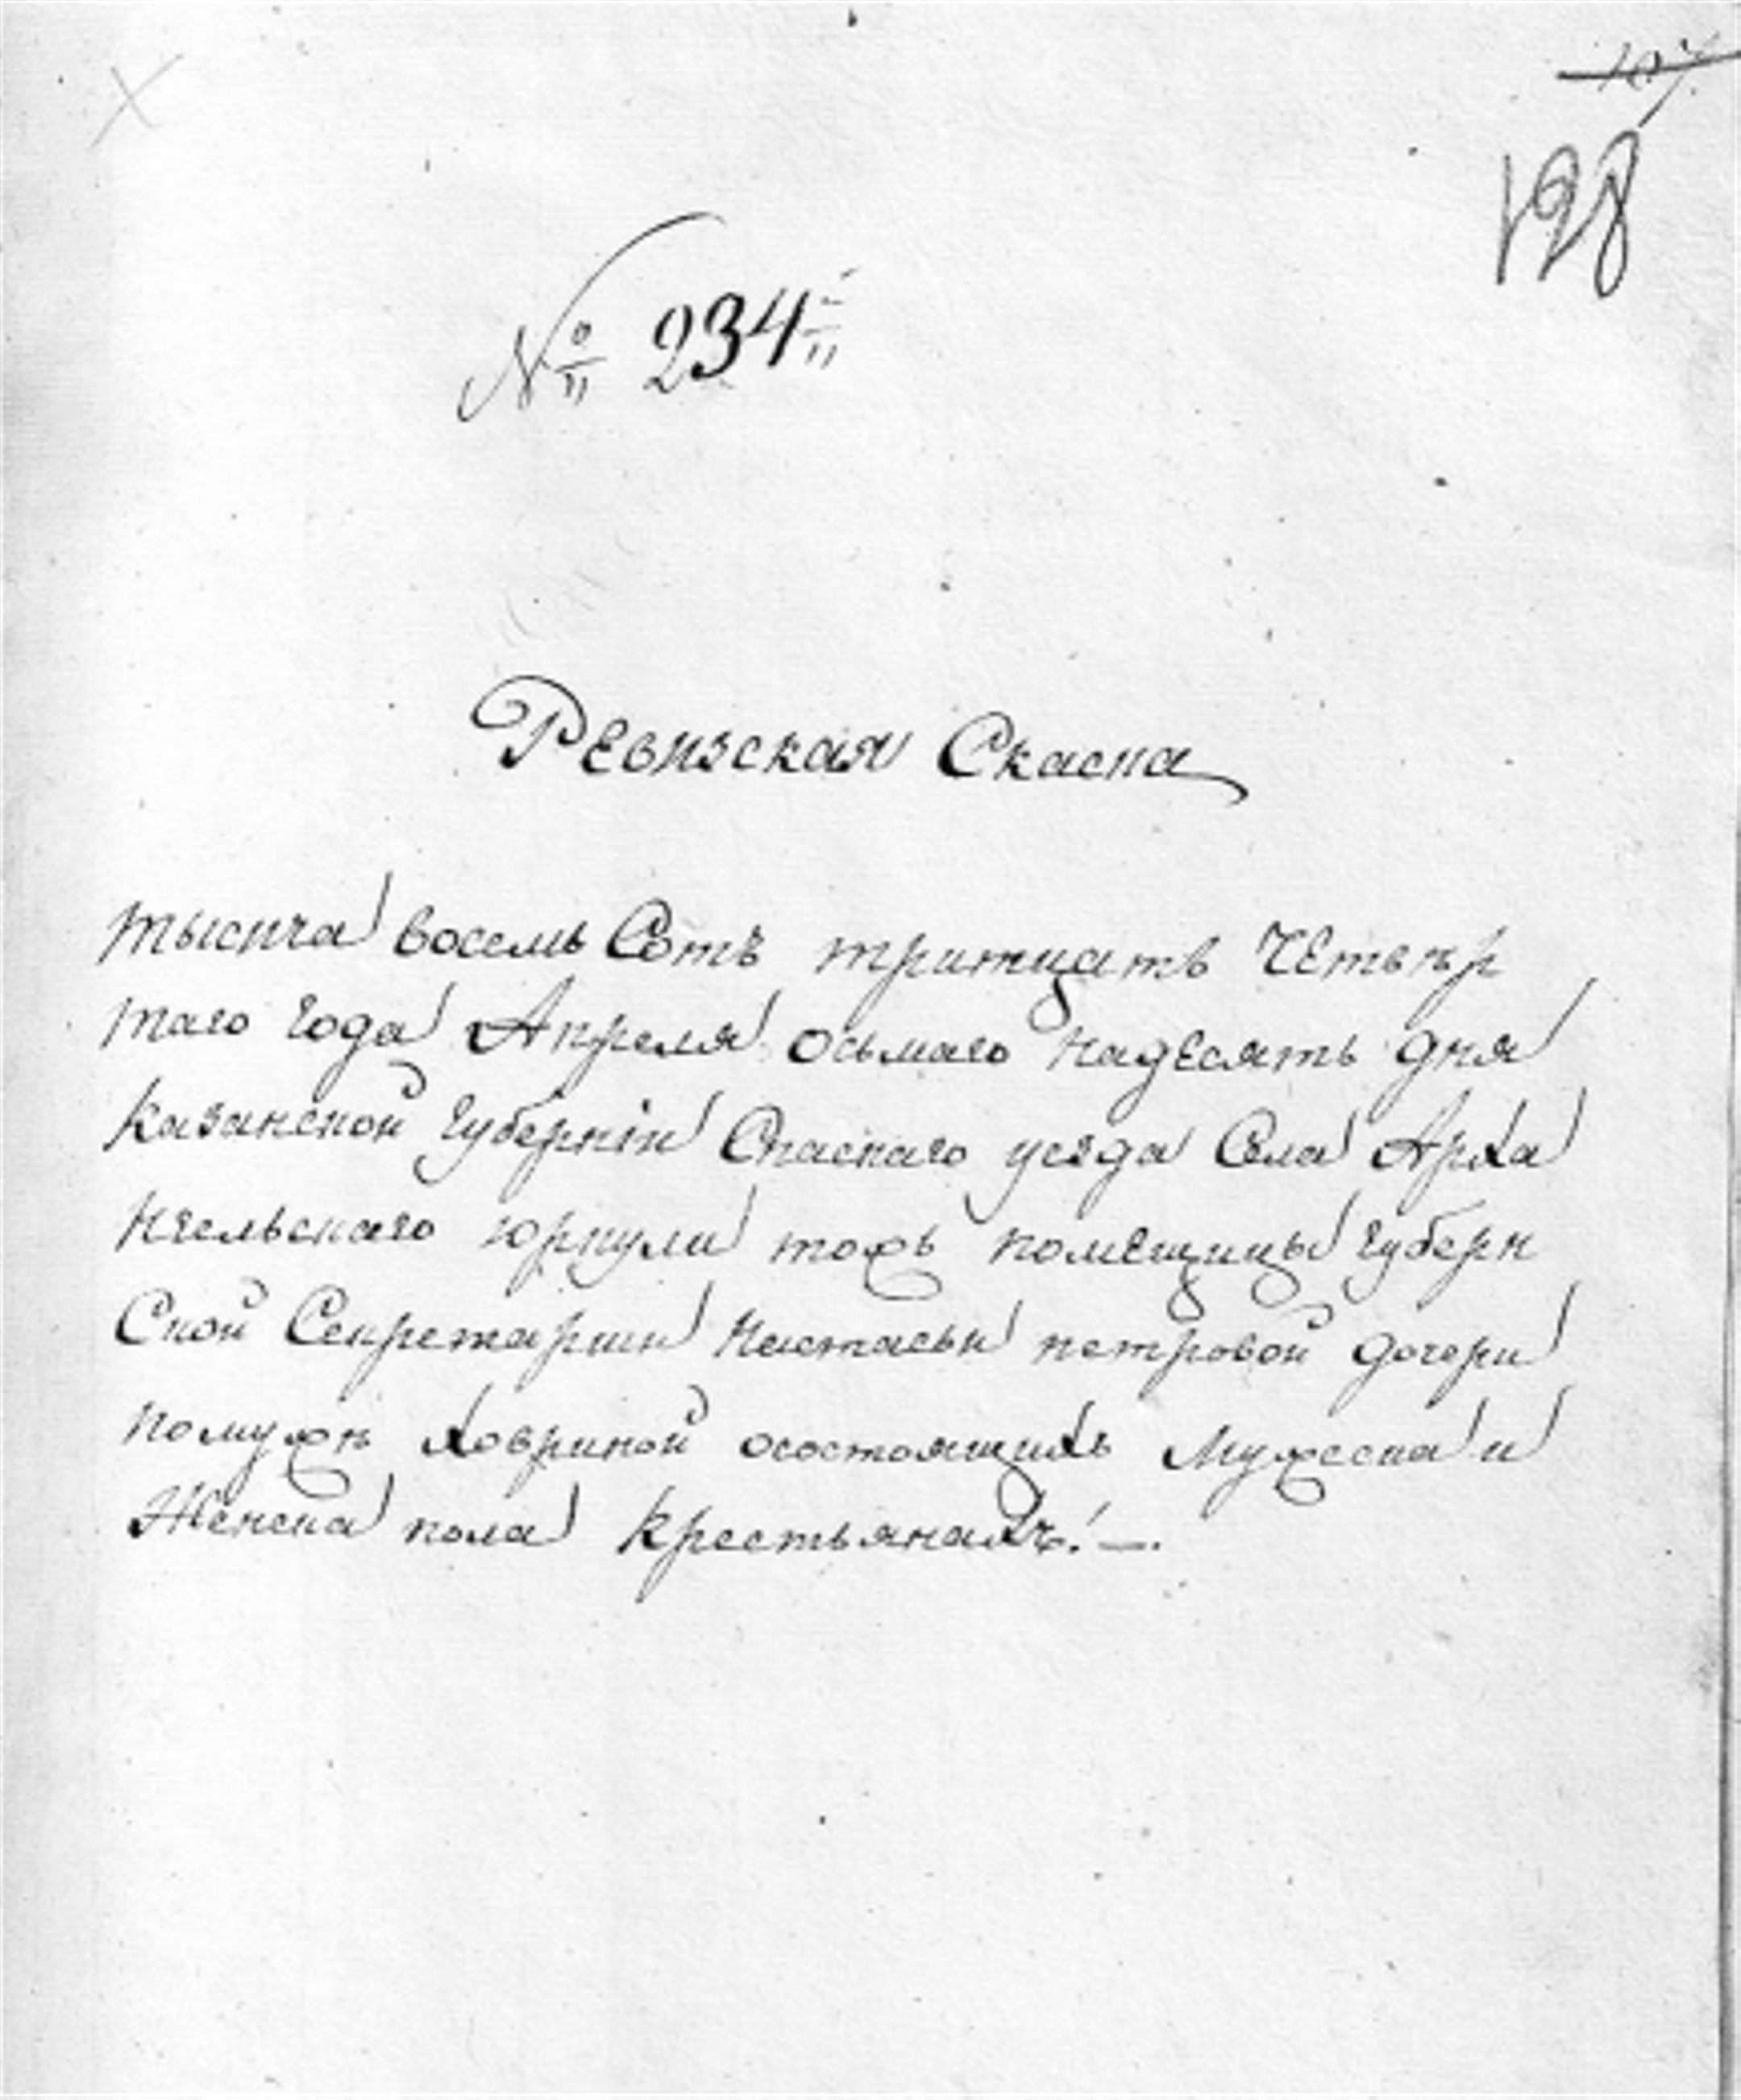 107.
128
№ 234
Ревизская Скаска
тысяча восемь Сотъ тритцать Четвѣр
таго года Апреля осьмаго надесять дня
казанской губерніи Спаскаго уезда Села Арха
нгельскаго юркули тожъ помещицы губерн
Ской Секретарши Настасьи петровой дочери
помужѣ Ховриной осостоящихъ Мужеска и
Женска пола крестьянахъ. —.